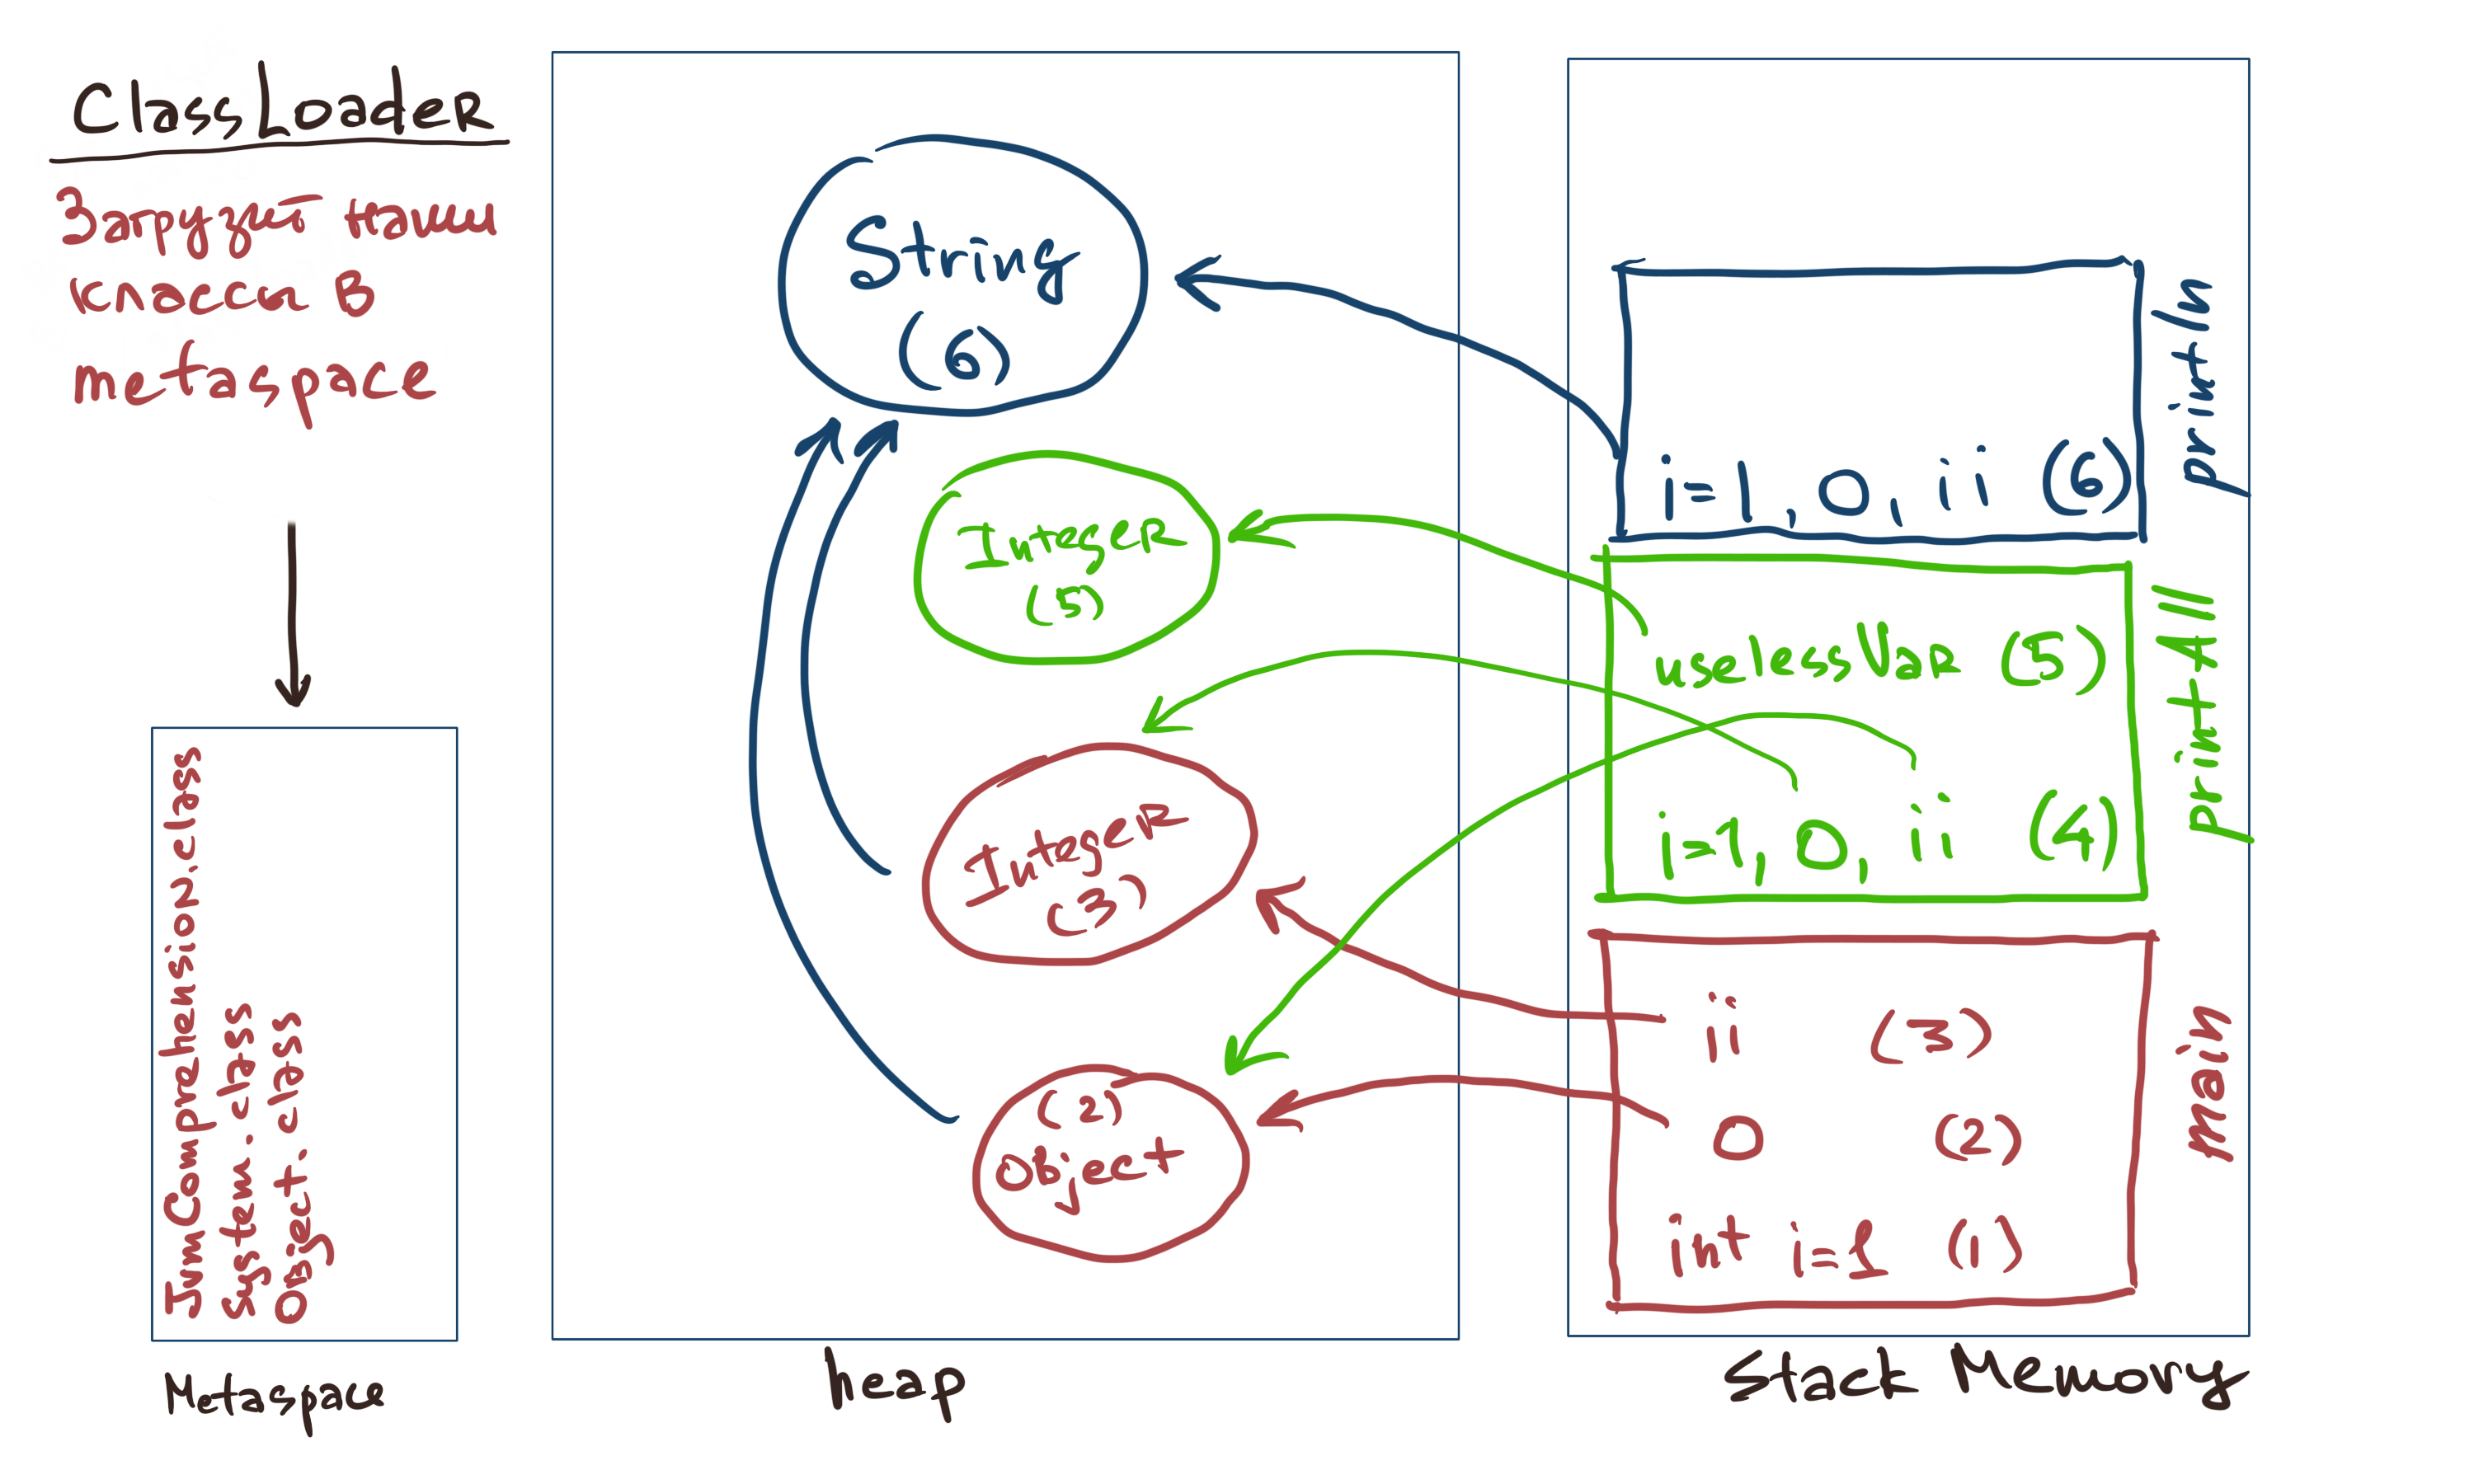 ClassLoader
Загрузит наши
классы в
metaspace
JvmComprehension.class
System.class
Object.class
Metaspace
String
(6)
Integer
(5)
Integer
(3)
(2)
Object
heap
i=1, O, ii (6)
println
uselessVar (5)
i=1, O, ii (4)
printAll
ii (3)
O (2)
int i=1 (1)
main
Stack Memory